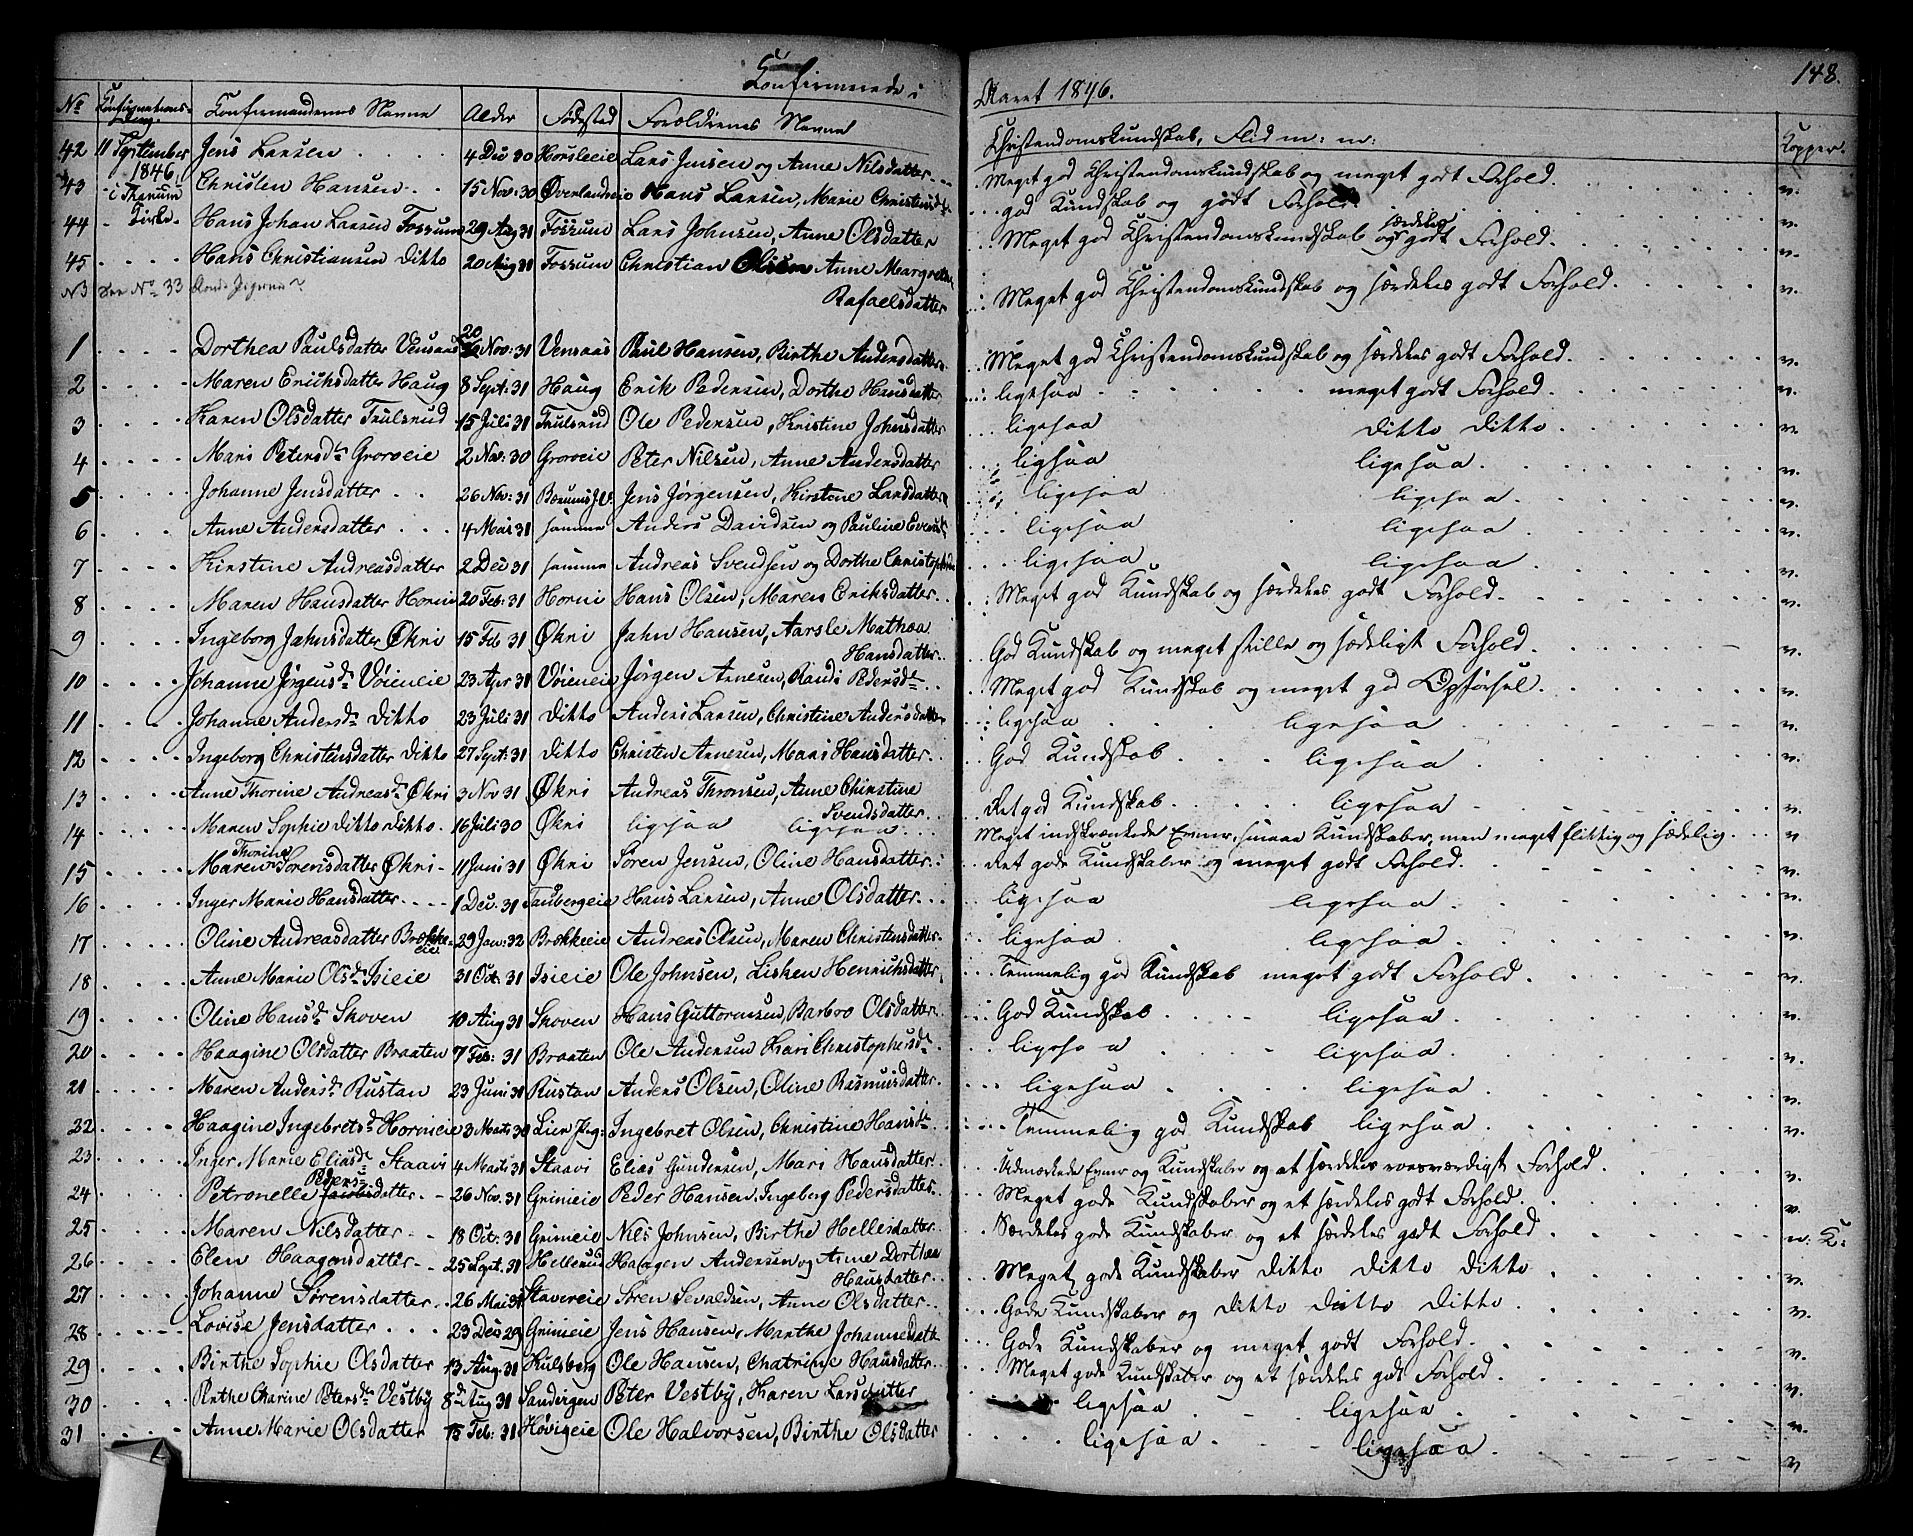 Konfirmerede i Aaret 1846. 148.
No Konfirmations-Dag. Konfirmandernes Navne Alder Fødested Forældrenes Navne Christendomskundskab, Flid m: m: Kopper.
42 11 September 1846 Jens Larsen 4 Dec 30 Horsleeie Lars Jensen og Anne Nilsdatter Meget god Christendomskundskab og meget godt Forhold. v.
43 i Tranum Christen Hansen 15 Nov: 30 Øverlandseie Hans Larsen, Marie god Kundskab og godt Forhold v.
44 Kirke Hans Johan Larsen Fossum 29 Aug 31 Fossum Lars Johnsen, Anne Olsdatter Meget god Christendomskundskab og særdeles godt Forhold. v.
45 Hans Christiansen Ditto 20 Aug 31 Fossum Christian Olsen Anne Margrethe Rafaelsdatter Meget god Christendomskundskab og særdeles godt Forhold. v.
NB No 33
1 Dorthea Paulsdatter Vensaas 20 Nov: 31 Vensaas Paul Hansen, Birthe Andersdatter Meget god Christendomskundskab og særdeles godt Forhold. v.
2 Maren Erichsdatter Haug 8 Sept: 31 Haug Erik Pedersen, Dorthe Hansdatter ligesaa meget godt Forhold. v.
3 Karen Olsdatter Trulsrud 15 Juli 31 Trulsrud Ole Pedersen, Kristine Johnsdatter ligesaa Ditto Ditto v.
4 Mari Petersdr Groroeie 2 Nov: 30 Groroeie Peter Nilsen, Anne Andersdatter ligesaa ligesaa v.
5 Johanne Jensdatter 26 Nov: 31 Bærums J.V. Jens Jørgensen, Kirstene Larsdatter ligesaa ligesaa v.
6 Anne Andersdatter 4 Mai 31 samme Anders Davidsen og Pauline ligesaa ligesaa v.
7 Kirstine Andreasdatter 2 Dec 31 samme Andreas Svendsen og Dorthe ligesaa ligesaa v.
8 Maren Hansdatter Horni 20 Feb: 31 Horni Hans Olsen, Maren Eriksdatter Meget god Kundskab og særdeles godt Forhold. v.
9 Ingeborg Jahnsdatter Økri 15 Feb 31 Økri Jahn Hansen, Aarsle Mathea Hansdatter God Kundskab og meget stille og sædeligt Forhold. v.
10 Johanne Jørgensdr Vøieneie 23 Apr 31 Vøieneie Jørgen Arnesen, Randi Pedersdr Meget god Kundskab og meget god Opførsel. v.
11 Johanne Andersdr Ditto 23 Juli 31 Ditto Anders Larsen, Christine Andersdatter ligesaa ligesaa v.
12 Ingeborg Christensdatter Ditto 27 Sept: 31 Ditto Christen Arnesen, Mari Hansdatter God Kundskab ligesaa v.
13 Anne Thorine Andreasdr Økri 3 Nov 31 Økri Andreas Thronsen, Anne Christine Svendsdatter Ret god Kundskab. ligesaa v.
14 Maren Sophie Ditto Ditto. 16 Juli 30 Økri ligesaa ligesaa Meget indskrænkede Evner, smaae Kundskaber, men meget flittig og sædelig. v
15 Maren Thorine Sørensdatter Økri 11 Juni 31 Økri Søren Jensen, Oline Hansdatter Ret gode Kundskaber og meget godt Forhold. v.
16 Inger Marie Hansdatter 1 Dec. 31 Taubergeie Hans Larsen, Anne Olsdatter ligesaa ligesaa v.
17 Oline Andreasdatter Brækkeeie 29 Jan: 32 Brækkeeie Andreas Olsen, Maren Christensdatter ligesaa ligesaa v.
18 Anne Marie Olsdr Isieie 31 Oct. 31 Isieie Ole Johnsen, Lisken Henrichsdatter Temmelig god Kundskab meget godt Forhold. v.
19 Oline Hansdr Skoven 10 Aug 31 Skoven Hans Guttormsen, Barbro Olsdatter God Kundskab ligesaa v.
20 Haagine Olsdatter Braaten 7 Feb: 31 Braaten Ole Andersen Kari Christophersdr ligesaa ligesaa v.
21 Maren Andersdr Rustan 23 Juni 31 Rustan Anders Olsen, Oline Rasmusdatter ligesaa ligesaa v.
22 Haagine Ingebretsdr Hornieie 3 Marts 30 Lier Ingebret Olsen, Christine Hansdr Temmelig god Kundskab ligesaa v.
23 Inger Marie Eliasdr Staavi 4 Marts 31 Staavi Elias Gundersen, Mari Hansdatter Udmærkede Evner og Kundskaber og et særdeles roesværdigt Forhold. v.
24 Petronelle Peders Jacobsdatter 26 Nov. 31 Grinieie Peder Hansen, Ingeborg Pedersdatter Meget gode Kundskaber og et særdeles godt Forhold. v.
25 Maren Nilsdatter 18 Oct: 31 Grinieie Nils Johnsen, Birthe Hellesdatter Særdeles gode Kundskaber og et særdeles godt Forhold n: K:
26 Elen Haagensdatter 25 Sept. 31 Hellerud Haagen Andersen og Anne Dorthea Hansdatter Meget gode Kundskaber Ditto Ditto Ditto v.
27 Johanne Sørensdatter 26 Mai 31 Stavereie Søren Sevaldsen, Anne Olsdatter Gode Kundskaber og Ditto Ditto Ditto v.
28 Lovise Jensdatter 23 Dec 29 Grinieie Jens Hansen, Marthe Johannesdatt Gode Kundskaber og meget godt Forhold. v.
29 Birthe Sophie Olsdatter 13 Aug. 31 Hulsberg Ole Hansen, Chatrine Hansdatter Meget gode Kundskaber og et særdeles godt Forhold. v.
30 Rathe Charine Petersdr Vestby 8de Aug 31 Sandvigen Peter Vestby, Karen Larsdatter ligesaa ligesaa v.
31 Anne Marie Olsdatter 15 Feb: 31 Høvigeie Ole Halvorsen, Birthe Olsdatter ligesaa ligesaa v